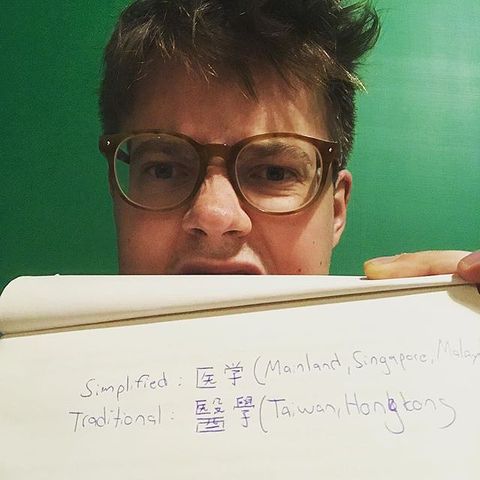 Simplified: 医学 (Mainland, Singapore, Malay
Traditional: 醫學 (Taiwan, Hongkong